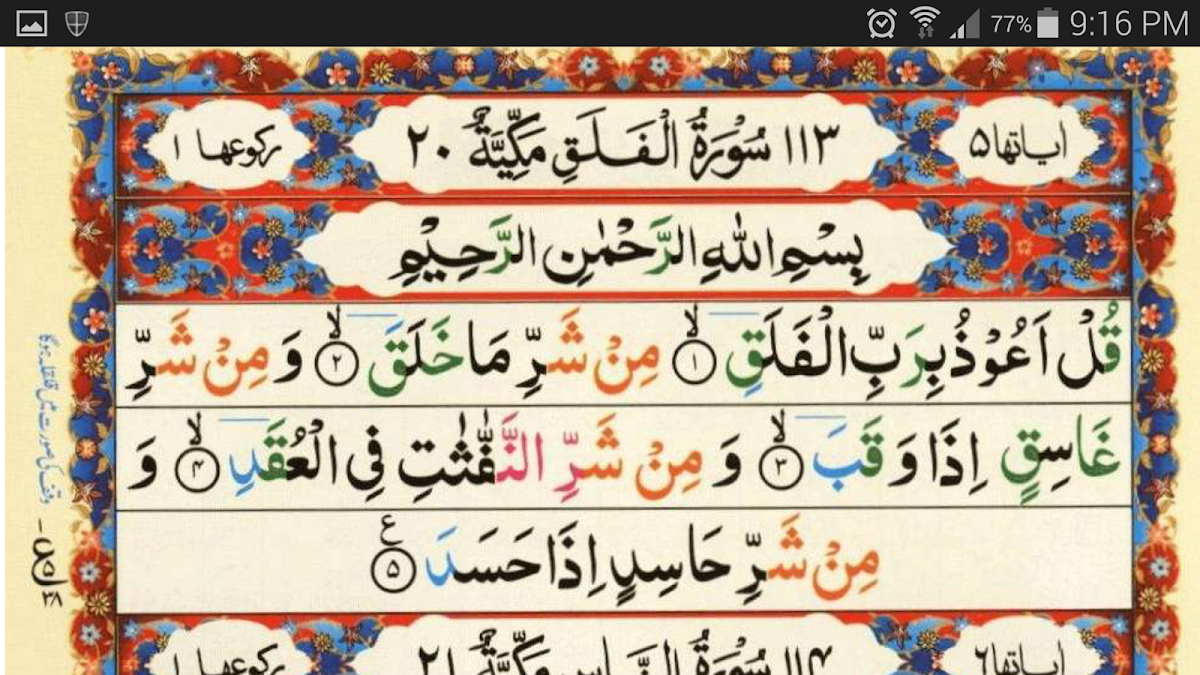 77% 9:16 PM
اٰیاتها ۵ ۱۱۳ سُوْرَةُ الْفَلَقِ مَكِّيَّةٌ ۲۰ ركوعها ۱
بِسْمِ اللّٰهِ الرَّحْمٰنِ الرَّحِيْمِ
قُلْ اَعُوْذُ بِرَبِّ الْفَلَقِ ۙ ۱ مِنْ شَرِّ مَا خَلَقَ ۙ ۲ وَ مِنْ شَرِّ
غَاسِقٍ اِذَا وَقَبَ ۙ ۳ وَ مِنْ شَرِّ النَّفّٰثٰتِ فِی الْعُقَدِ ۙ ۴ وَ
مِنْ شَرِّ حَاسِدٍ اِذَا حَسَدَ ۵ ع
اٰیاتها ۶ ۱۱۴ سُوْرَةُ النَّاسِ مَكِّيَّةٌ ۲۱ ركوعها ۱
۳۸